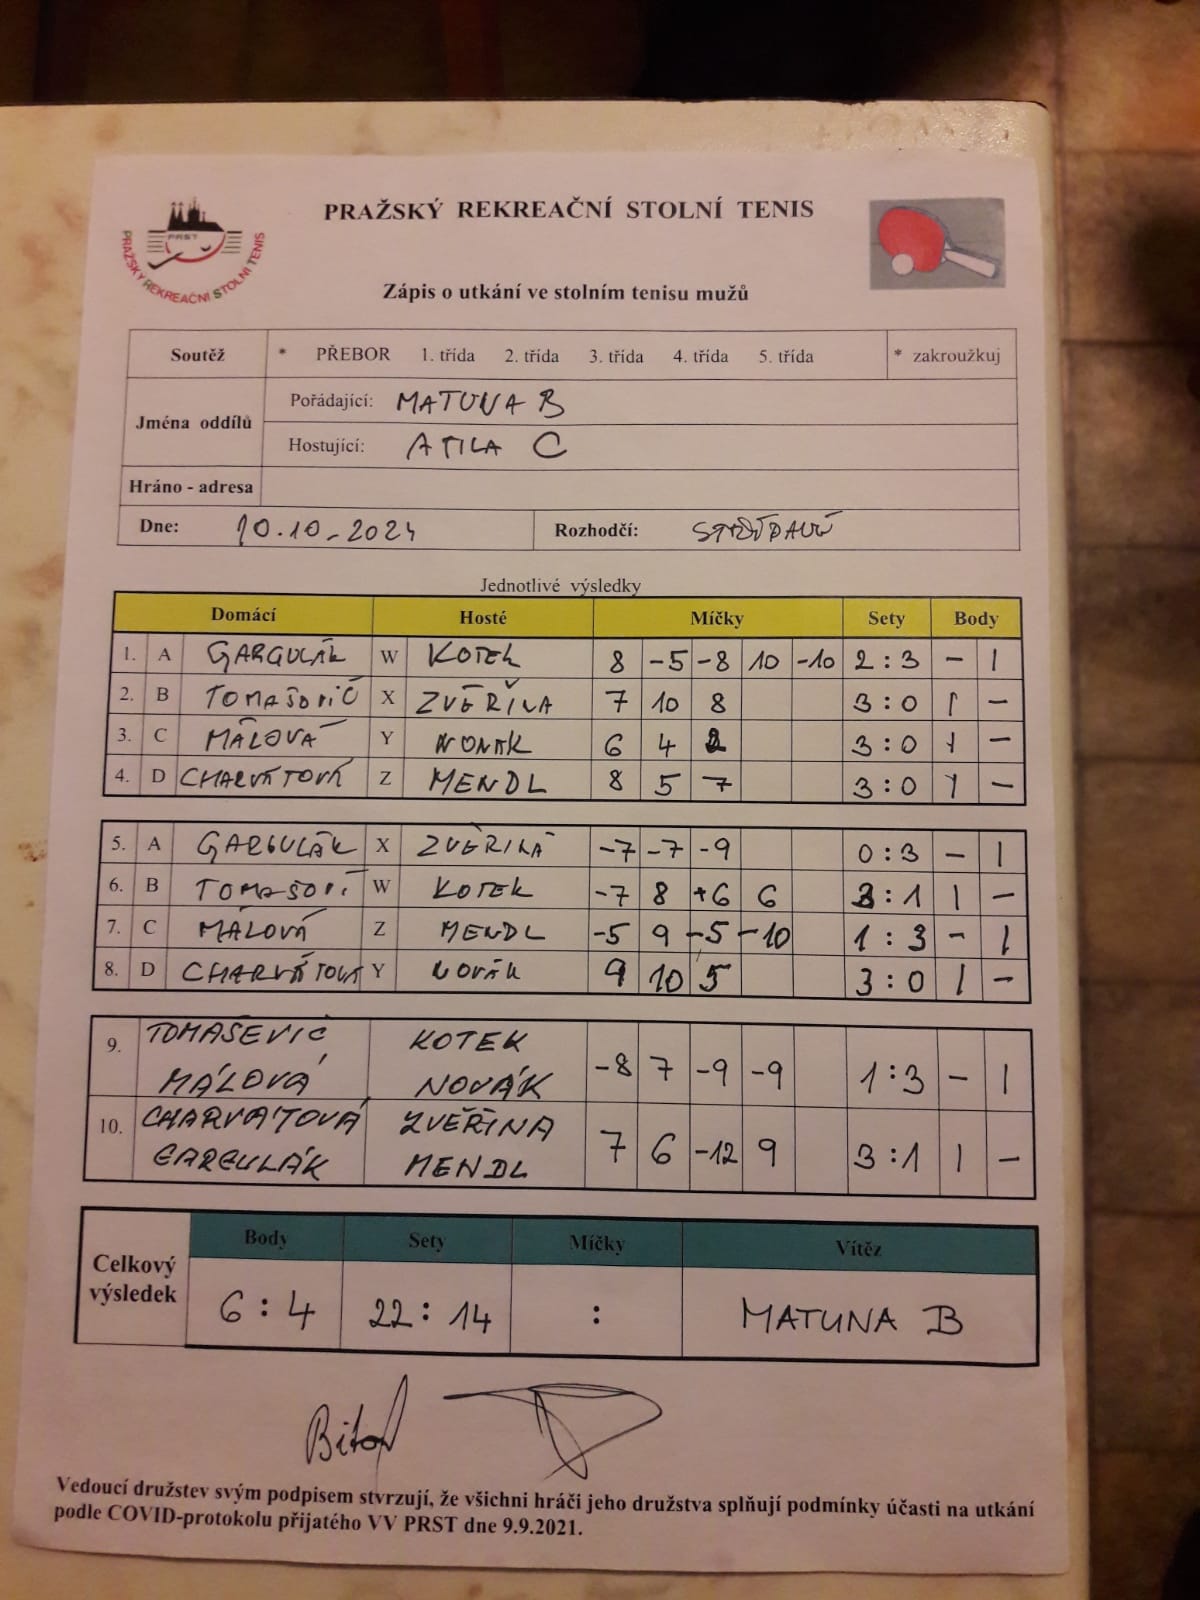 PRAŽSKÝ REKREAČNÍ STOLNÍ TENIS
PRST
PRAŽSKÝ REKREAČNÍ STOLNÍ TENIS
Zápis o utkání ve stolním tenisu mužů
Soutěž * PŘEBOR 1. třída 2. třída 3. třída 4. třída 5. třída * zakroužkuj
Jména oddílů
Pořádající: MATUNA B
Hostující: ATILA C
Hráno - adresa
Dne: 10.10-2024 Rozhodčí:
Jednotlivé výsledky
Domácí Hosté Míčky Sety Body
1. A GARGULÁK W KOTEK 8 -5 -8 10 -10 2:3 - 1
2. B TOMAŠOVIČ X ZVĚŘINA 7 10 8 3:0 1 -
3. C MÁLOVÁ Y NOVAK 6 4 2 3:0 1 -
4. D CHARVÁTOVÁ Z MENDL 8 5 7 3:0 1 -
5. A GARGULÁK X ZVĚŘINA -7 -7 -9 0:3 - 1
6. B TOMAŠOVI W KOTEK -7 8 +6 6 3:1 1 -
7. C MÁLOVÁ Z MENDL -5 9 -5 -10 1:3 - 1
8. D CHARVÁTOVÁ Y NOVÁK 9 10 5 3:0 1 -
9. TOMAŠEVIČ KOTEK
MÁLOVÁ NOVÁK -8 7 -9 -9 1:3 - 1
10. CHARVÁTOVÁ ZVĚŘINA
GARGULÁK MENDL 7 6 -12 9 3:1 1 -
Celkový výsledek
Body Sety Míčky Vítěz
6:4 22:14 : MATUNA B
Vedoucí družstev svým podpisem stvrzují, že všichni hráči jeho družstva splňují podmínky účasti na utkání
podle COVID-protokolu přijatého VV PRST dne 9.9.2021.